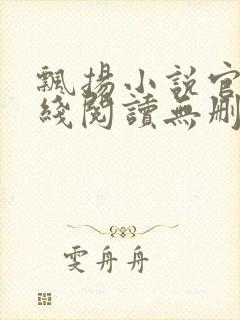 飄揚小說官
綫閱讀無刪
雯舟舟